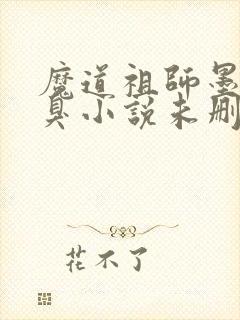 魔道祖師墨
臭小說未刪
花不了